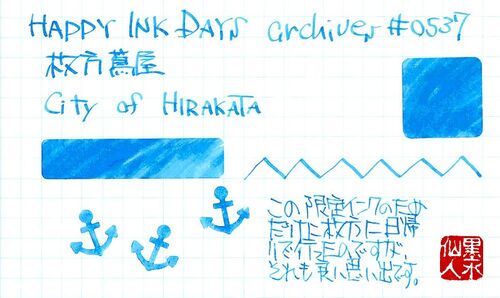 HAPPY INK DAYS archives #0537
枚方蔦屋
City of HIRAKATA
この限定インクのため
だけに枚方に日帰
りで行ったのですが、
それも良い思い出です。
墨水
仙人